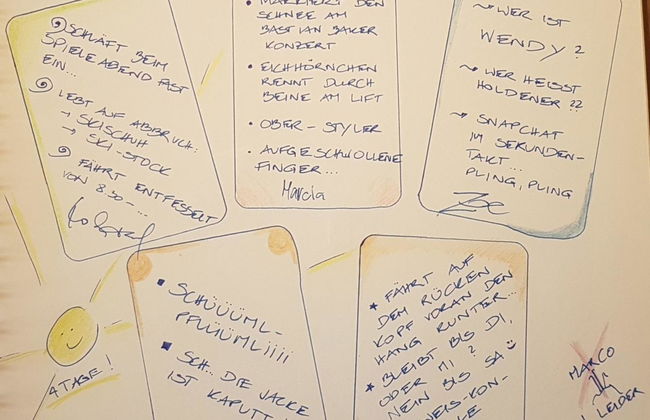 SCHLÄFT BEIM
SPIELEABEND FAST
EIN...
LEBT AUF ABBRUCH:
→ SKISCHUH
→ SKI-STOCK
FÄHRT ENTFESSELT
VON 8.30-...
• MARKIERT DEN
SCHNEE AM
BASTIAN BAKER
KONZERT
• EICHHÖRNCHEN
RENNT DURCH
BEINE AM LIFT
• OBER-STYLER
• AUFGESCHWOLLENE
FINGER...
Marcia
~ WER IST
WENDY?
~ WER HEISST
HOLDENER??
~ SNAPCHAT
IM SEKUNDEN-
TAKT...
PLING, PLING
Zoe
▪ SCHÜÜÜML-
PFLÜÜMLiiii
▪ SCH.. DIE JACKE
IST KAPUTT
* FÄHRT AUF
DEM RÜCKEN
KOPF VORAN DEN
HANG RUNTER...
* BLEIBT BIS DI,
ODER MI?
NEIN BIS SA ☺
EIS-KON-
4 TAGE!
MARCO
LEIDER